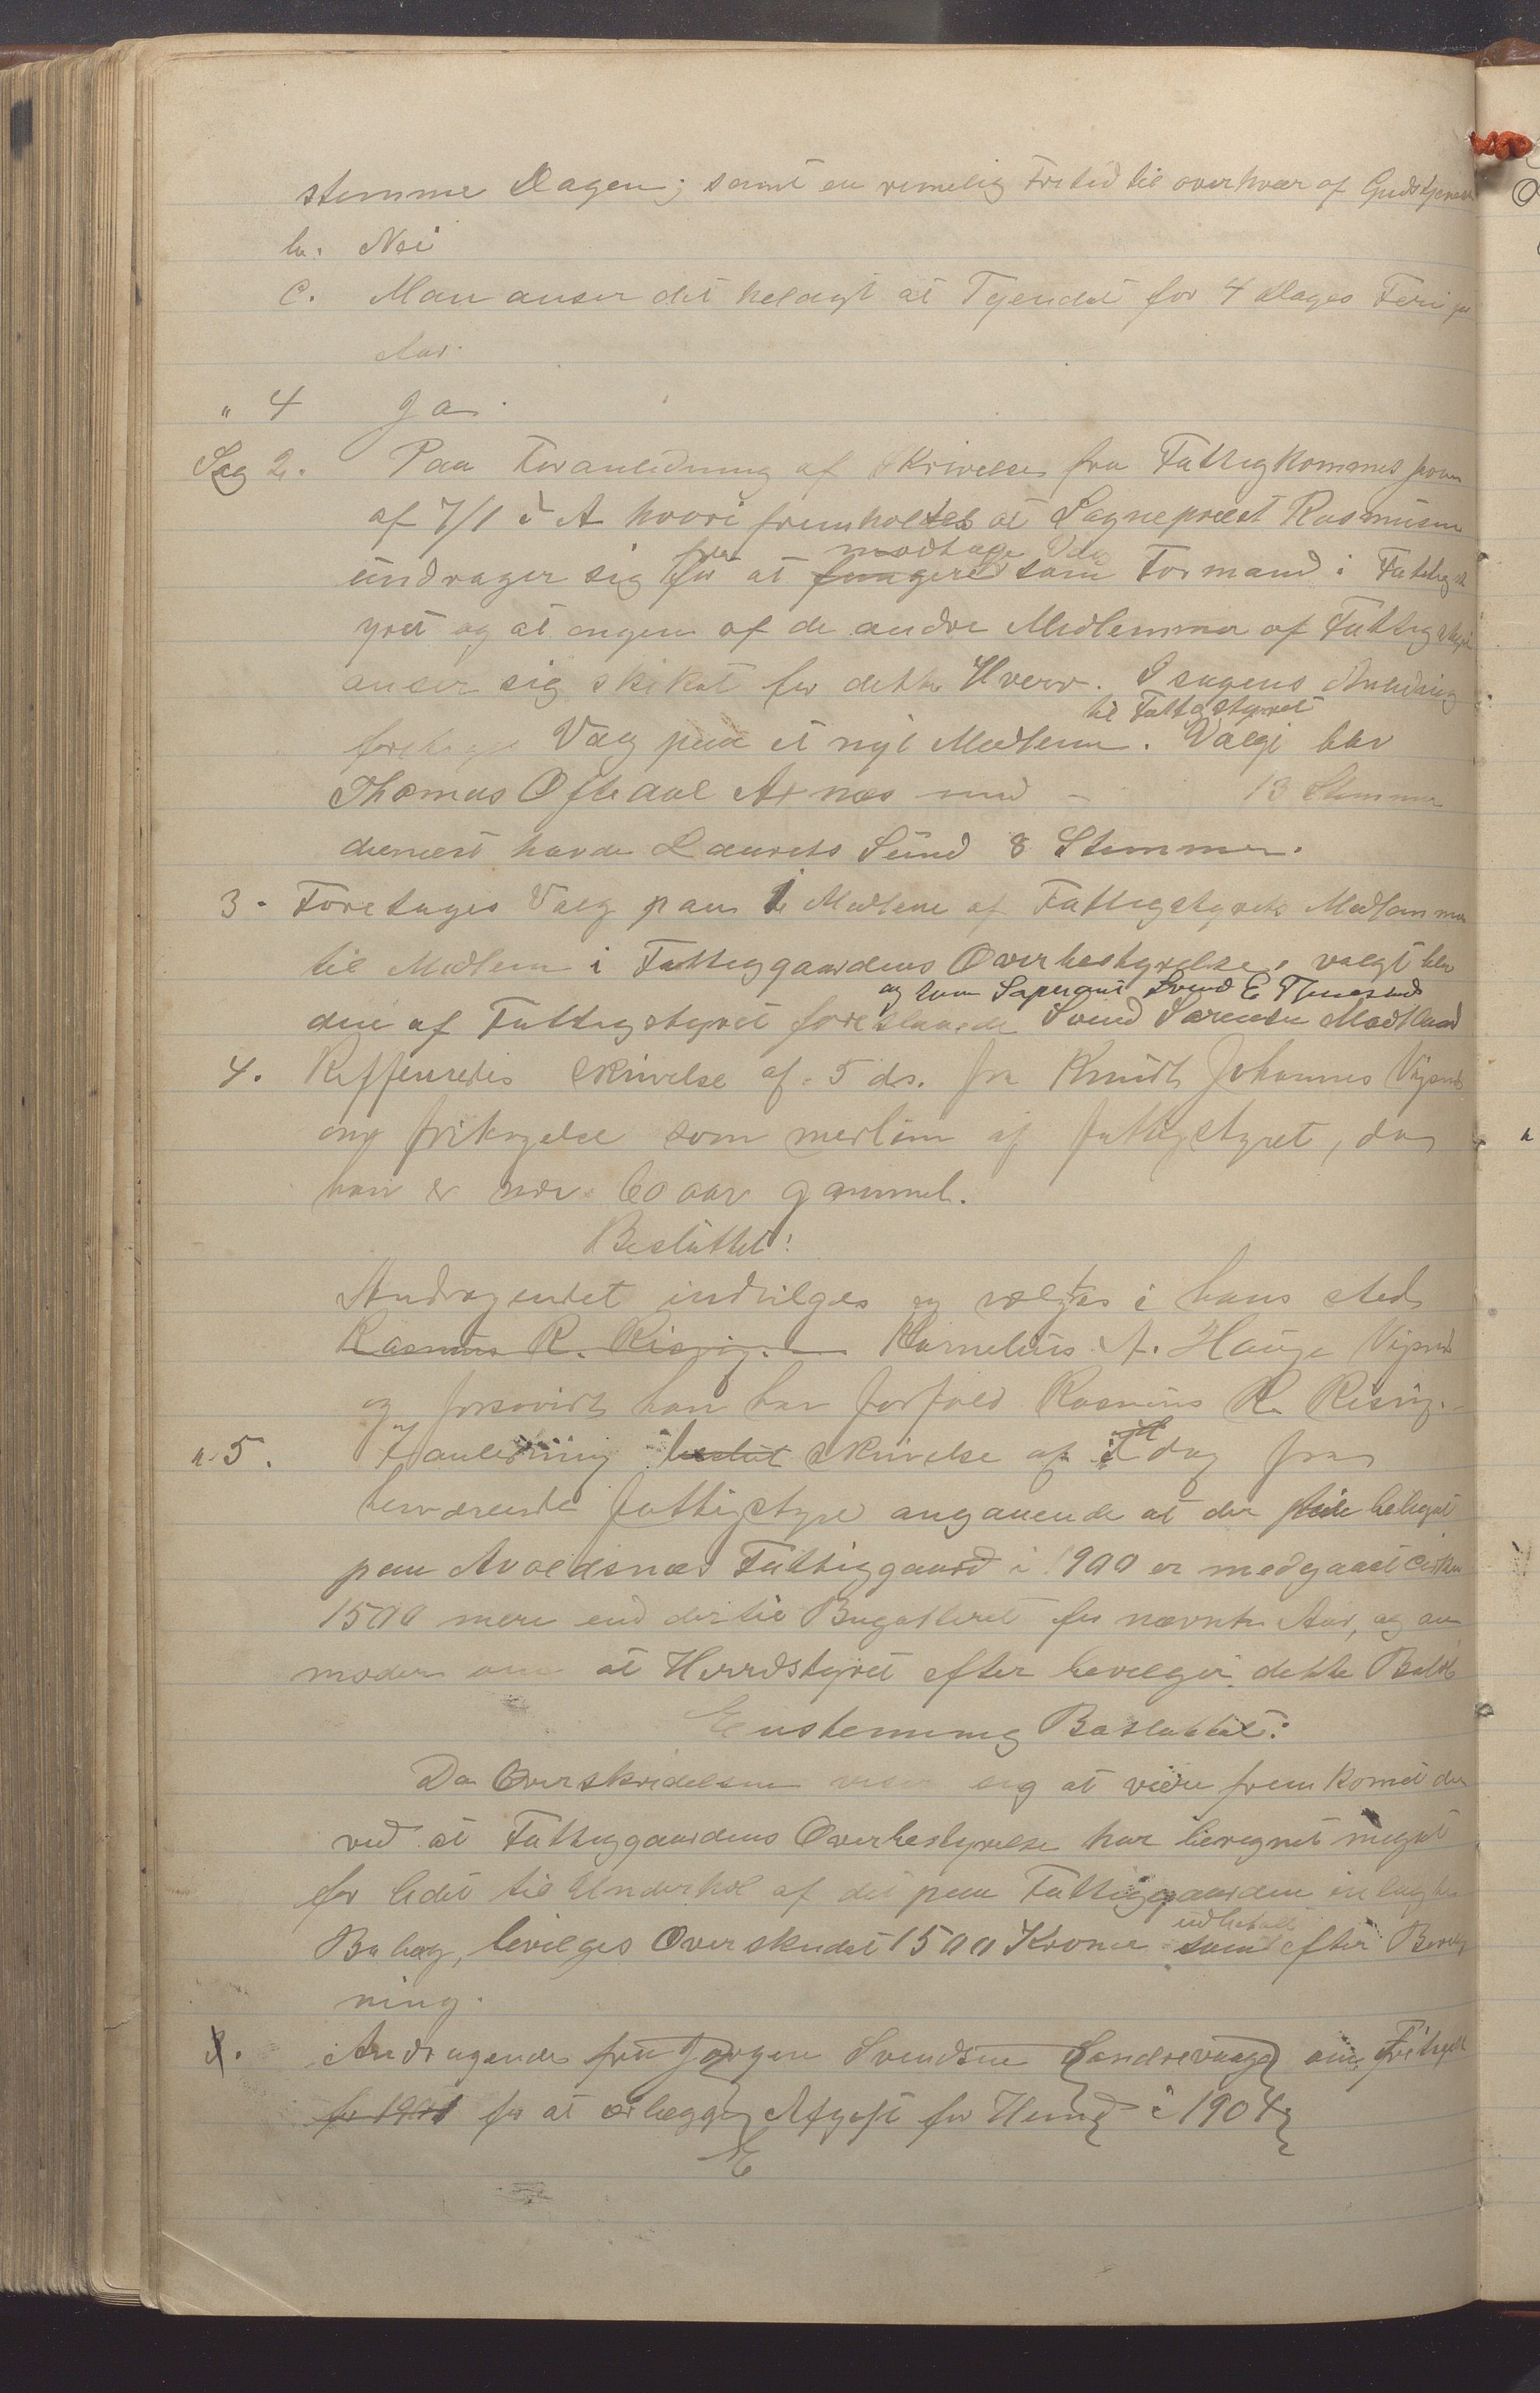 stemme Dagen; samt en rimelig Fritid til overhvær af Gudstjeneste
b. Nei
c. Man anser det heldigt at Tyendet for 4 Dages Feri pr
Aar.
" 4 Ja.
Sag 2. Paa Foranledning af Skrivelse fra Fattigkommis
af 7/1 d A hvori fremholdes at Sognepræst Rasmusen
undrager sig fra at modtage Valg som Formand i Fattigst
yret og at ingen af de andre Medlemmer af Fattigstyre
anser sig skikket for dette Hverv. I sagens Anledning
til Fattigstyret
foretages Valg paa et nyt Medlem. Valgt blev
Thomas Oftedal Avnæs med - 13 Stemmer
dernæst havde Laurits Sund 8 Stemmer.
3. Foretages Valg paa 1 Medlem af Fattigstyrets Medlemmer
til Medlem i Fattiggaardens Overbestyrelse, valgt blev
og som Supleant Svend E
den af Fattigstyret foreslaaede Svend Sørensen Modtland
4. Refferertes skrivelse af 5 ds. fra Knudt Johannes Visnes
om fritagelse som medlem af fattigstyret, da
han er over 60 aar gammel.
Besluttet:
Andragendet indvilges og vælges i hans sted
Rasmus R. Risvig. Kornelius A. Hauge Visnes
og forsovidt han har forfald Rasmus R. Risvig.
" 5. I anledning beslut skrivelse af i dag fra
herværende fattigstyre angaaende at der belagt
paa Avaldsnæs Fattiggaard i 1900 er medgaaet cirka
1500 mere end dertil Bugetteret for nævnte Aar, og an
moder om at Herredstyret efter bevilger dette Beløb
Enstemmig Besluttet:
Da Overskridelsen viser sig at være fremkomet der
ved at Fattiggaardens Overbestyrelse har beregnet meget
for lidet til Underhol af det paa Fattiggaarden inlagte
Belæg, bevilges Overskudet 1500 Kroner som udbetalt efter Bereg
ning.
Andragende fra Jørgen Svendsen Sandrevaage om Fritagelse
for 1901 for at erlægge Afgift for Hund i 1904
E